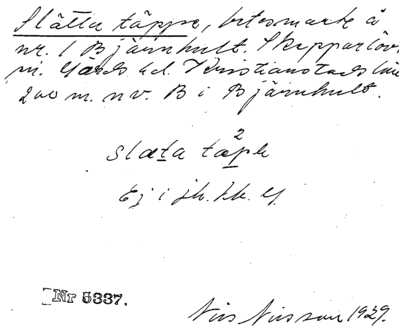 Slätta täppe, betesmark å
nr. 1 Bjärnhult. Skepparlöv
Gärds hd. Kristianstads län
200 m. nv. B i Bjärnhult.
2
slæta tæpe
Ej i jb. kk.
Nr 5337.
Nils Nilsson 1929.